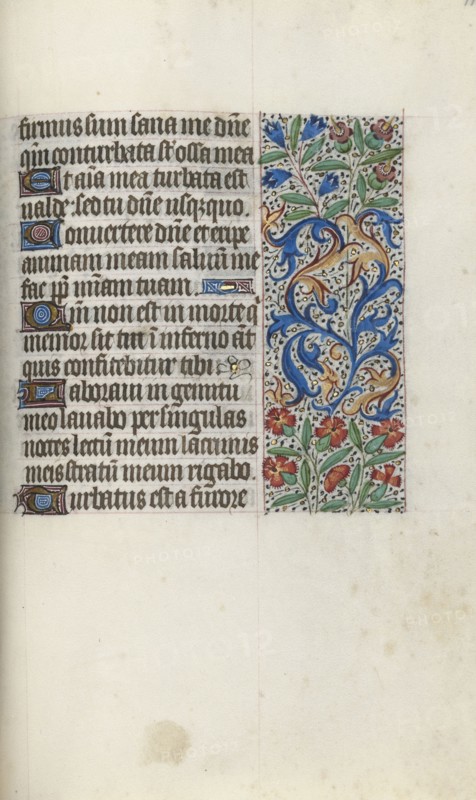 firmus sum sana me dñe
qm̃ conturbata sĩt ossa mea
Et aĩa mea turbata est
ualde: sed tu dñe usquequo.
Conuertere dñe et eripe
animam meam saluũ me
fac pp̃ mĩam tuam.
Qm̃ non est in morte q̃
memor sit tui ĩ inferno aũt
quis confitebitur tibi
Laboraui in gemitu
meo lauabo per singulas
noctes lectũ meum lacrimis
meis stratũ meum rigabo.
Turbatus est a furore